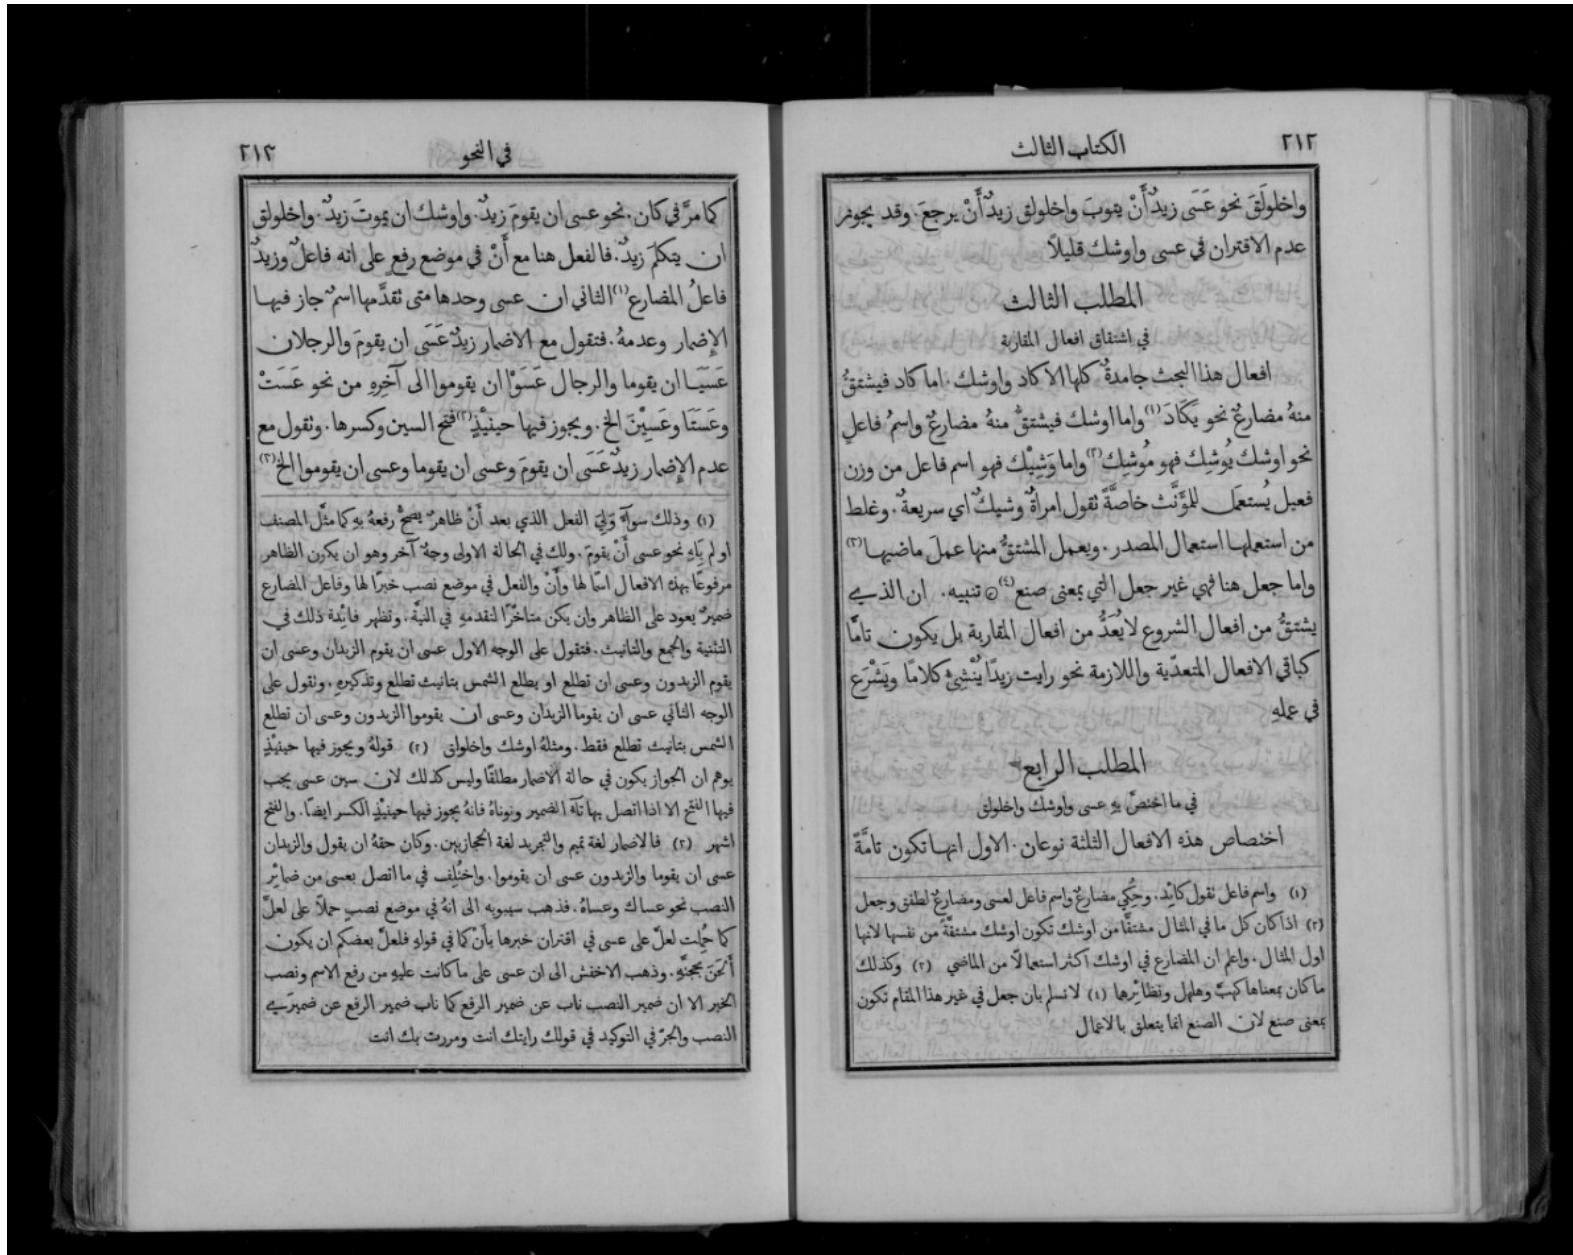 ٢١٢
الكتاب الثالث
واخلولَقَ نحو عَسَى زيدٌ أَنْ يتوبَ واخلولق زيدٌ أَنْ يرجعَ. وقد يجوز
عدم الاقتران في عسى واوشك قليلاً
المطلب الثالث
في اشتقاق افعال المقاربة
افعال هذا البحث جامدةٌ كلها الا كاد واوشك. اما كاد فيشتقُّ
منهُ مضارعٌ نحو يكَادَ (١) واما اوشك فيشتقُّ منهُ مضارعٌ واسمُ فاعلٍ
نحو اوشك يُوشِك فهو مُوشِك (٢) واما وَشِيْك فهو اسم فاعل من وزن
فعيل يُستعمَل للمؤَنَّث خاصَّةً نقول امراةٌ وشيكٌ اي سريعةٌ. وغلط
من استعملها استعمال المصدر. ويعمل المشتقُّ منها عملَ ماضيها (٣)
واما جعل هنا فهي غير جعل التي بمعنى صنع (٤) ۞ تنبيه. ان الذي
يشتقُّ من افعال الشروع لا يُعَدُّ من افعال المقاربة بل يكون تامًّا
كباقي الافعال المتعدّية واللازمة نحو رايت زيدًا يُنْشِئ كلامًا ويَشْرَع
في عملهِ
المطلب الرابع
في ما اختصَّ بهِ عسى واوشك واخلولق
اختصاص هذه الافعال الثلثة نوعان. الاول انها تكون تامَّةً
(١) واسم فاعل نقول كائِد. وحُكِي مضارعٌ واسم فاعل لعسى ومضارعٌ لطفق وجعل
(٢) اذا كان كل ما في المثال مشتقًّا من اوشك تكون اوشك مشتقّةً من نفسها لانها
اول المثال. واعلم ان المضارع في اوشك اكثر استعمالاً من الماضي (٣) وكذلك
ما كان بمعناها كهبَّ وهلهل ونظائِرها (٤) لا نسلم بان جعل في غير هذا المقام تكون
بمعنى صنع لان الصنع انما يتعلق بالاعمال
في النحو
٢١٣
كما مرَّ في كان. نحو عسى ان يقومَ زيدٌ. واوشك ان يموتَ زيدٌ. واخلولق
ان يتكلمَ زيدٌ. فالفعل هنا مع أَنْ في موضع رفعٍ على انه فاعلٌ وزيدٌ
فاعلُ المضارع (١) الثاني ان عسى وحدها متى تقدَّمها اسمٌ جاز فيها
الإِضمار وعدمهُ. فتقول مع الاضمار زيدٌ عَسَى ان يقومَ والرجلان
عَسَيَا ان يقوما والرجال عَسَوْا ان يقوموا الى آخِرِهِ من نحو عَسَتْ
وعَسَتَا وعَسِيْنَ الخ. ويجوز فيها حينئِذٍ (٢) فتح السين وكسرها. ونقول مع
عدم الإِضمار زيدٌ عَسَى ان يقومَ وعسى ان يقوما وعسى ان يقوموا الخ (٣)
(١) وذلك سوآءٌ وَلِيَ الفعل الذي بعد أَنْ ظاهرٌ يصحُّ رفعهُ بهِ كما مثَّل المصنف
او لم يَلِهِ نحو عسى أَنْ يقومَ. ولك في الحالة الاولى وجهٌ آخر وهو ان يكون الظاهر
مرفوعًا بهذه الافعال اسمًا لها وأَنْ والفعل في موضع نصب خبرًا لها وفاعل المضارع
ضميرٌ يعود على الظاهر وان يكن متاخرًا لتقدمهِ في النيَّة. ونظهر فائِدة ذلك في
التثنية والجمع والتانيث. فتقول على الوجه الاول عسى ان يقوم الزيدان وعسى ان
يقوم الزيدون وعسى ان تطلع او يطلع الشمس بتانيث تطلع وتذكيرهِ. ونقول على
الوجه الثاني عسى ان يقوما الزيدان وعسى ان يقوموا الزيدون وعسى ان تطلع
الشمس بتانيث تطلع فقط. ومثلهُ اوشك واخلولق (٢) قولهُ ويجوز فيها حينئِذٍ
يوهم ان الجواز يكون في حالة الاضمار مطلقًا وليس كذلك لان سين عسى يجب
فيها الفتح الا اذا اتصل بها تآءُ الضمير ونوناهُ فانهُ يجوز فيها حينئِذٍ الكسر ايضًا. والفتح
اشهر (٣) فالاضمار لغة تميم والتجريد لغة الحجازيين. وكان حقهُ ان يقول والزيدان
عسى ان يقوما والزيدون عسى ان يقوموا. واختُلِف في ما اتصل بعسى من ضمائِر
النصب نحو عساك وعساهُ. فذهب سيبويه الى انهُ في موضع نصبٍ حملاً على لعلَّ
كما حُمِلت لعلَّ على عسى في اقتران خبرها بأَنْ كما في قولهِ فلعلَّ بعضكم ان يكون
أَلحَنَ بحجتهِ. وذهب الاخفش الى ان عسى على ما كانت عليهِ من رفع الاسم ونصب
الخبر الا ان ضمير النصب ناب عن ضمير الرفع كما ناب ضمير الرفع عن ضميرَي
النصب والجرّ في التوكيد في قولك رايتك انت ومررت بك انت